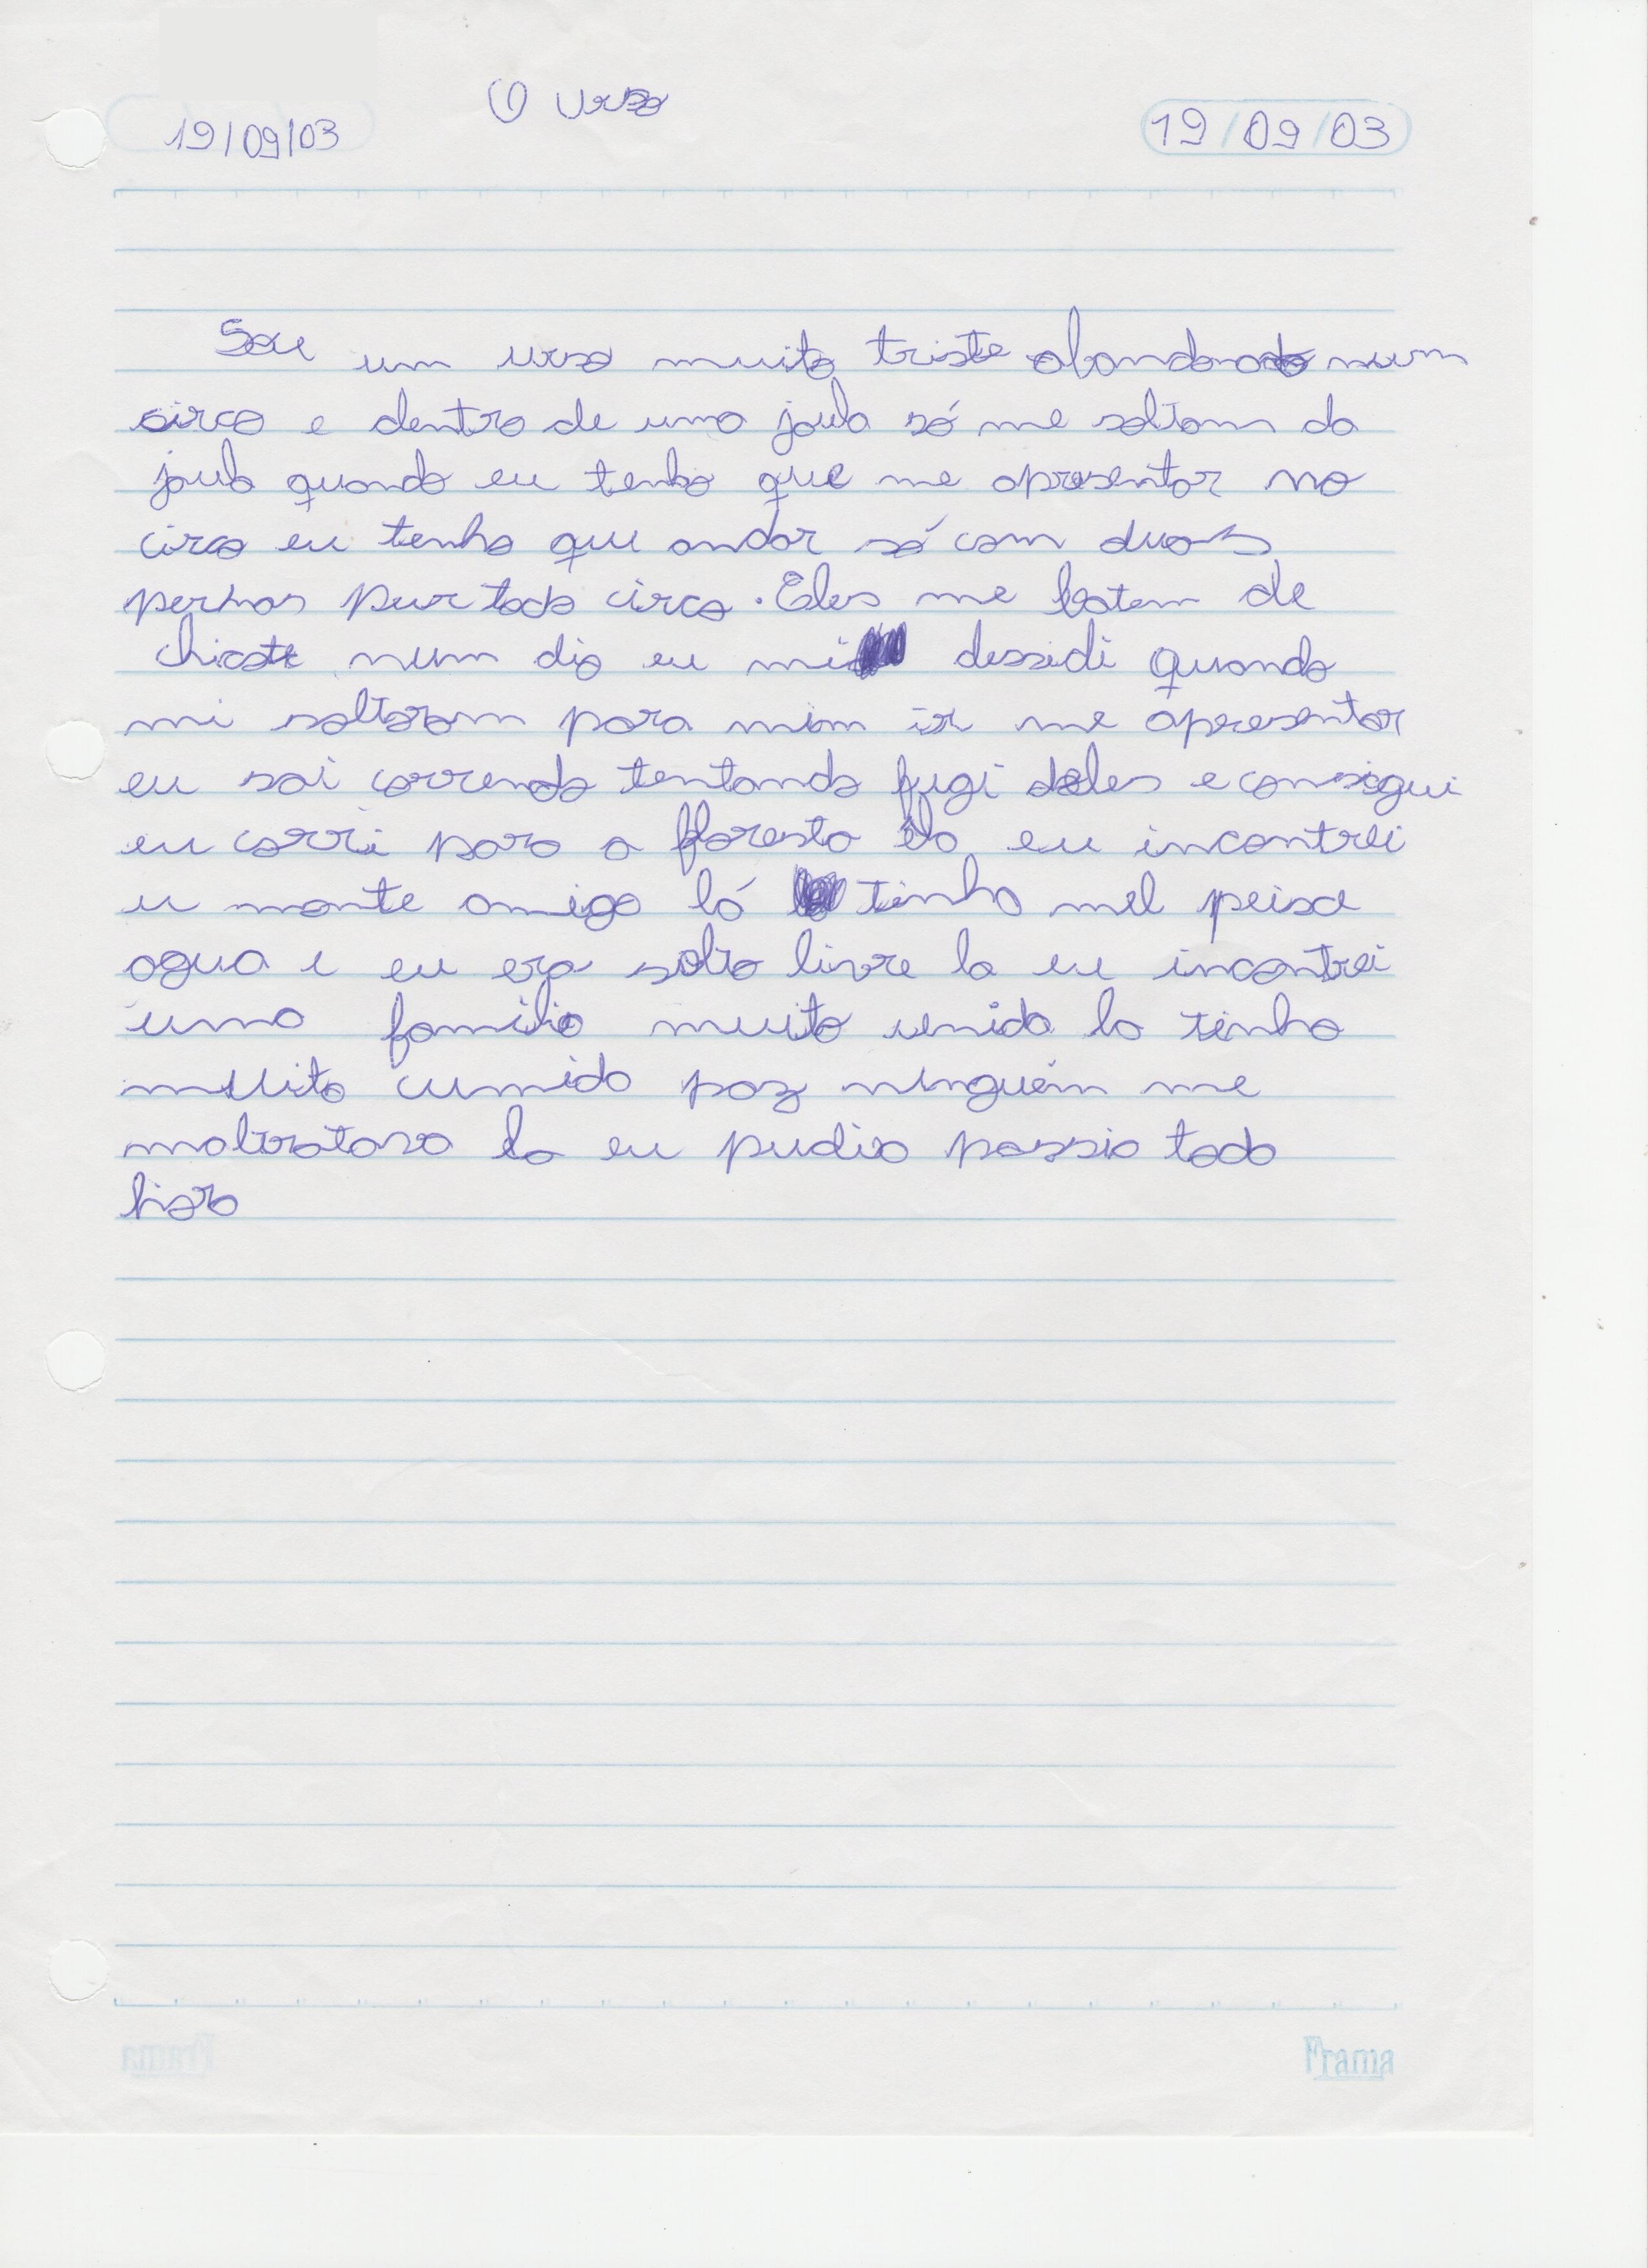 O urso
19/09/03
19/09/03
Sou um urso muito triste abandonado num
circo e dentro de uma jaula só me soltam da
jaula quando eu tenho que me apresentar no
circo eu tenho que andar só com duas
pernas pur todo circo. Eles me batem de
chicote num dia eu mi dessidi quando
mi soltaram para mim ir me apresentar
eu sai correndo tentando fugi deles e consigui
eu corri para a floresta eu incontrei
u monte amigo lá tinha mel peixe
agua e eu era solto livre la eu incontrei
uma familia muito unida la tinha
muito cumida paz ninguém me
maltratava la eu pudia passia todo
Frama